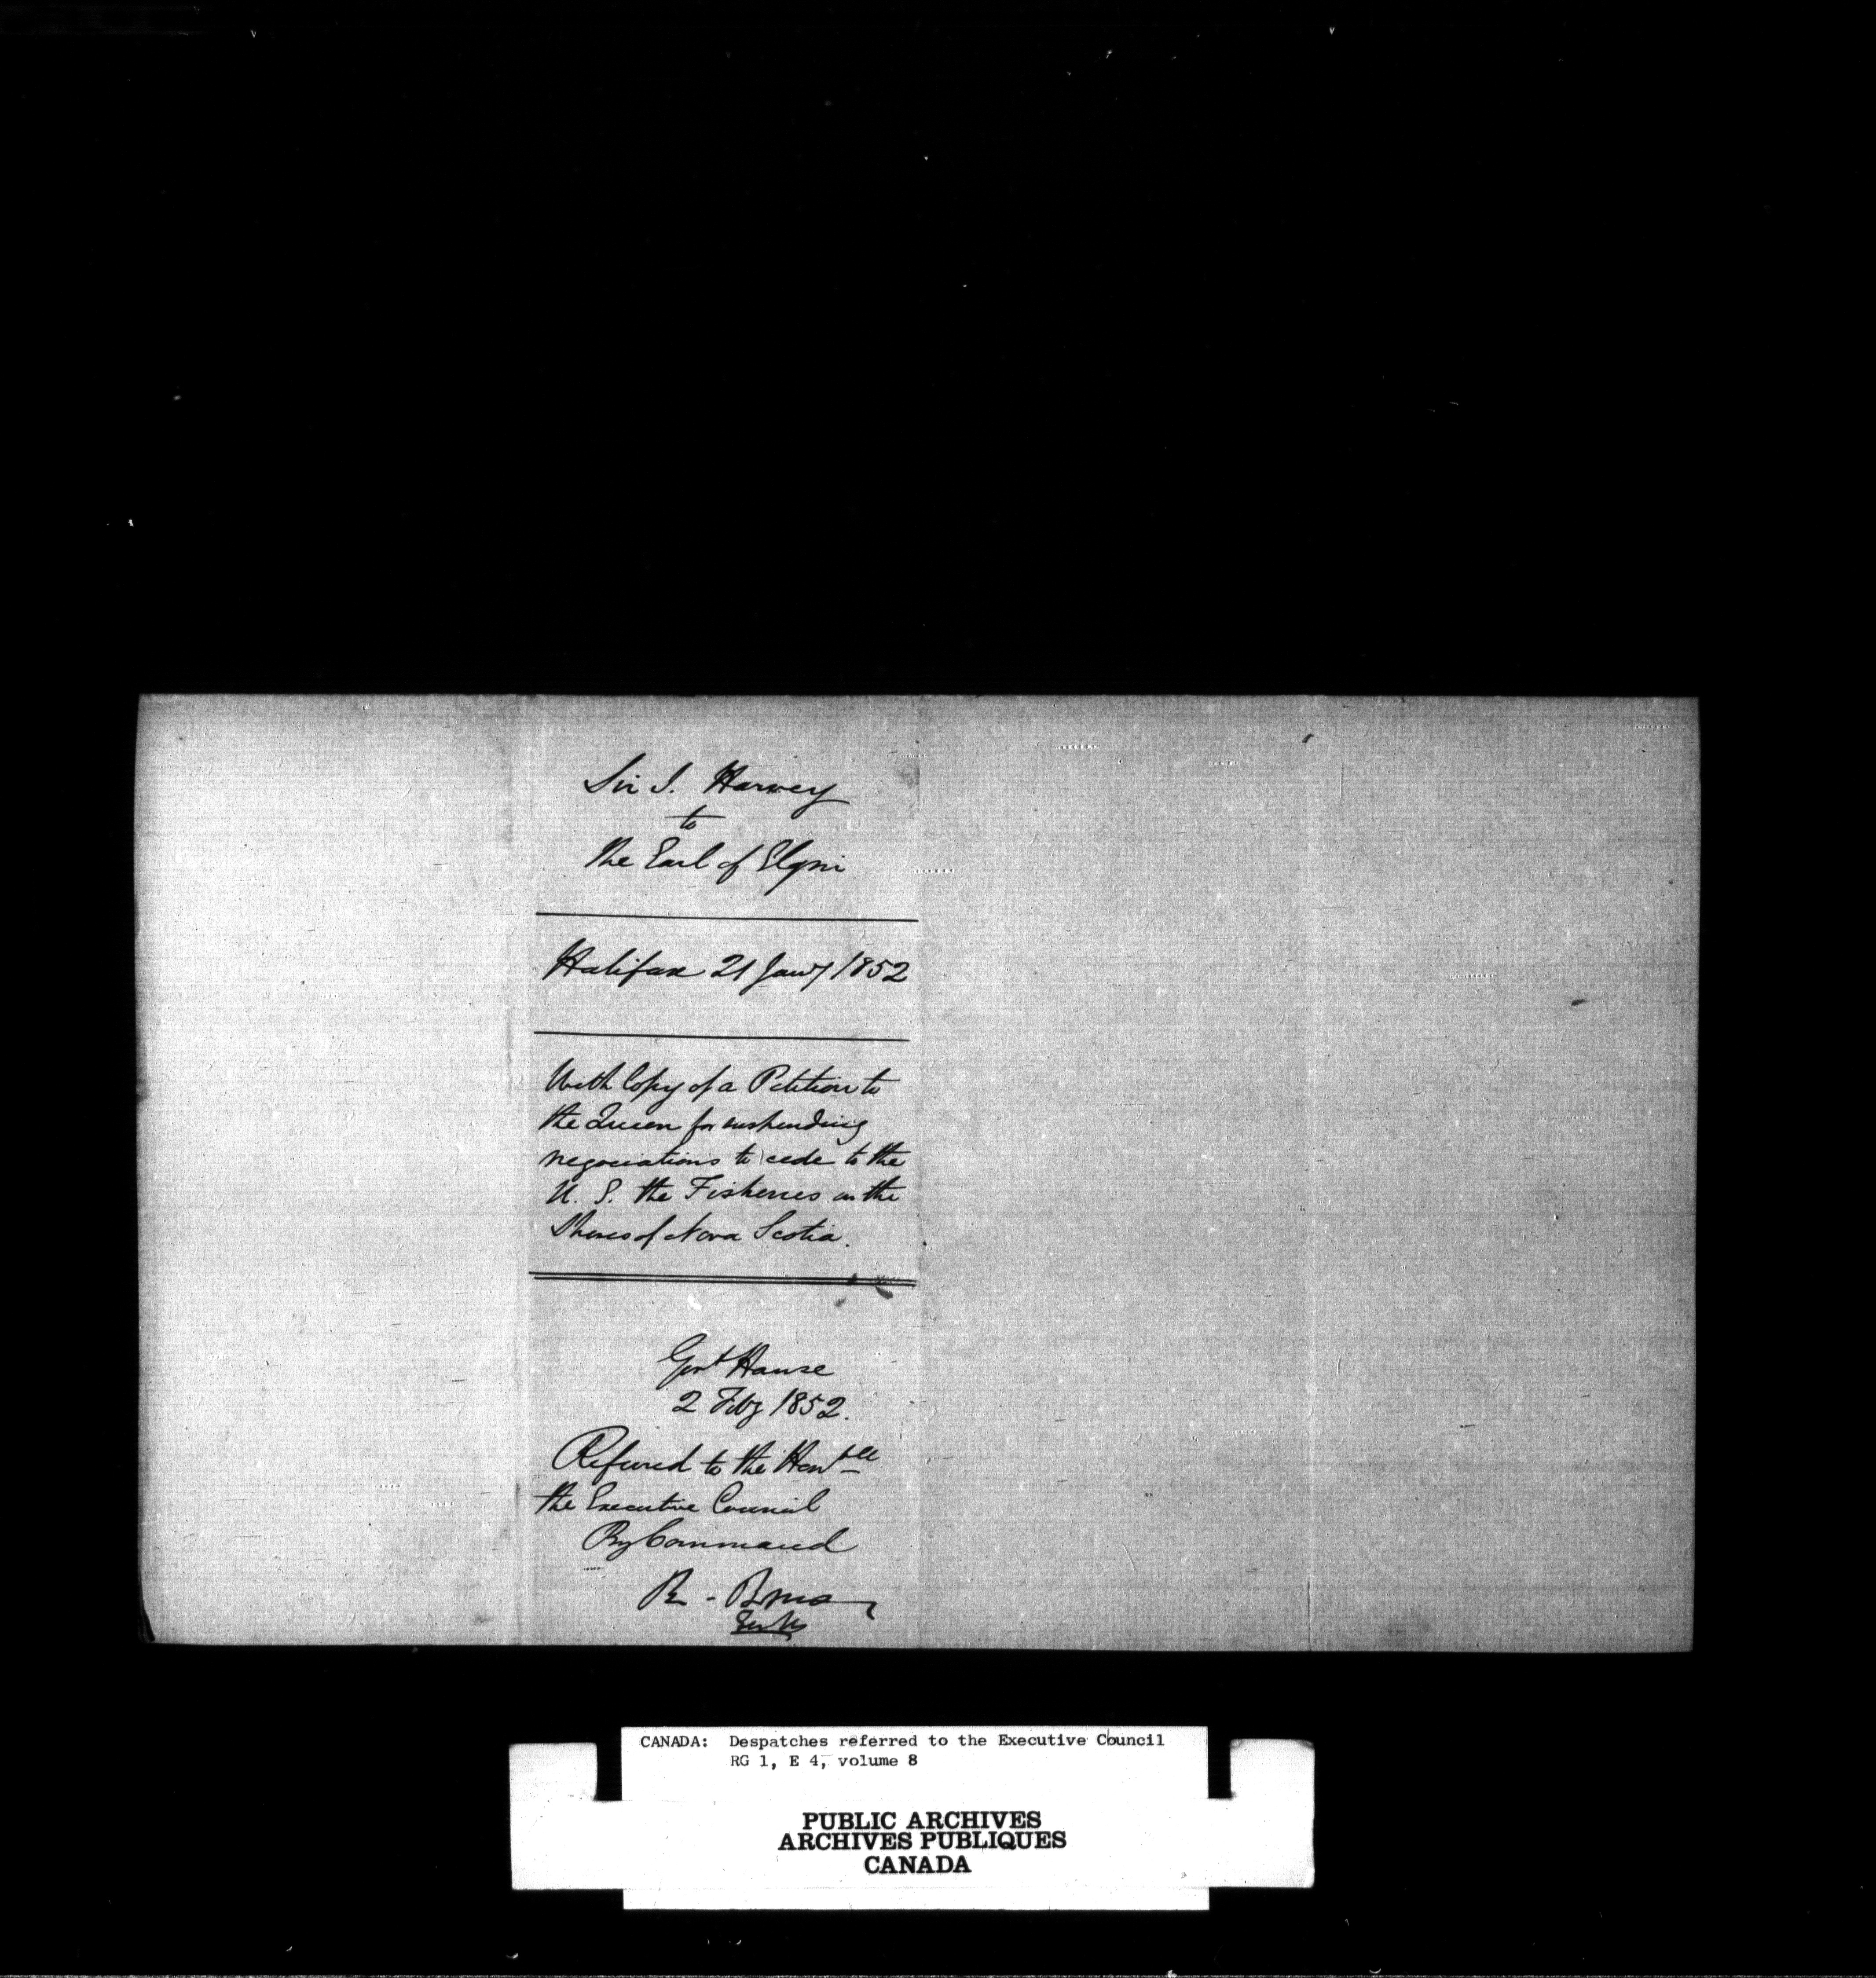 Sir J. Harvey
to
the Earl of Elgin
Halifax 21 Jany 1852
With Copy of a Petition to
the Queen for suspending
negociations to cede to the
U. S. the Fisheries on the
Shores of Nova Scotia.
Govt House
2 Feby 1852.
Referred to the Honble
the Executive Council
By Command
R. Bruce
CANADA: Despatches referred to the Executive Council
RG 1, E 4, volume 8
PUBLIC ARCHIVES
ARCHIVES PUBLIQUES
CANADA